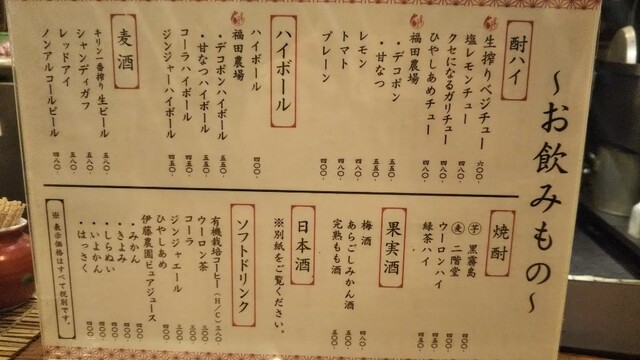 ～お飲みもの～
酎ハイ
生搾りベジチュー 六〇〇.
塩レモンチュー 四八〇.
クセになるガリチュー 四八〇.
ひやしあめチュー 四八〇.
福田農場
・デコポン 五五〇.
・甘なつ 五五〇.
レモン 四八〇.
トマト 四八〇.
プレーン 四〇〇.
ハイボール
ハイボール 四〇〇.
福田農場
・デコポンハイボール 五五〇.
・甘なつハイボール 五五〇.
コーラハイボール 四五〇.
ジンジャーハイボール 四五〇.
麦酒
キリン一番搾り 生ビール 五八〇.
シャンディガフ 五八〇.
レッドアイ 五八〇.
ノンアルコールビール 四八〇.
焼酎
芋 黒霧島 四〇〇
麦 二階堂 四〇〇
ウーロンハイ 四五〇
緑茶ハイ 四五〇
果実酒
梅酒 四八〇
あらごしみかん酒 五〇〇
完熟もも酒 五〇〇
日本酒
※別紙をご覧ください。
ソフトドリンク
有機栽培コーヒー(H/C) 三八〇
ウーロン茶 三〇〇
コーラ 三〇〇
ジンジャエール 三〇〇
ひやしあめ 四〇〇
伊藤農園ピュアジュース
・みかん 四〇〇
・きよみ 四〇〇
・しらぬい 四〇〇
・いよかん 四〇〇
・はっさく 四〇〇
※表示価格はすべて税別です。